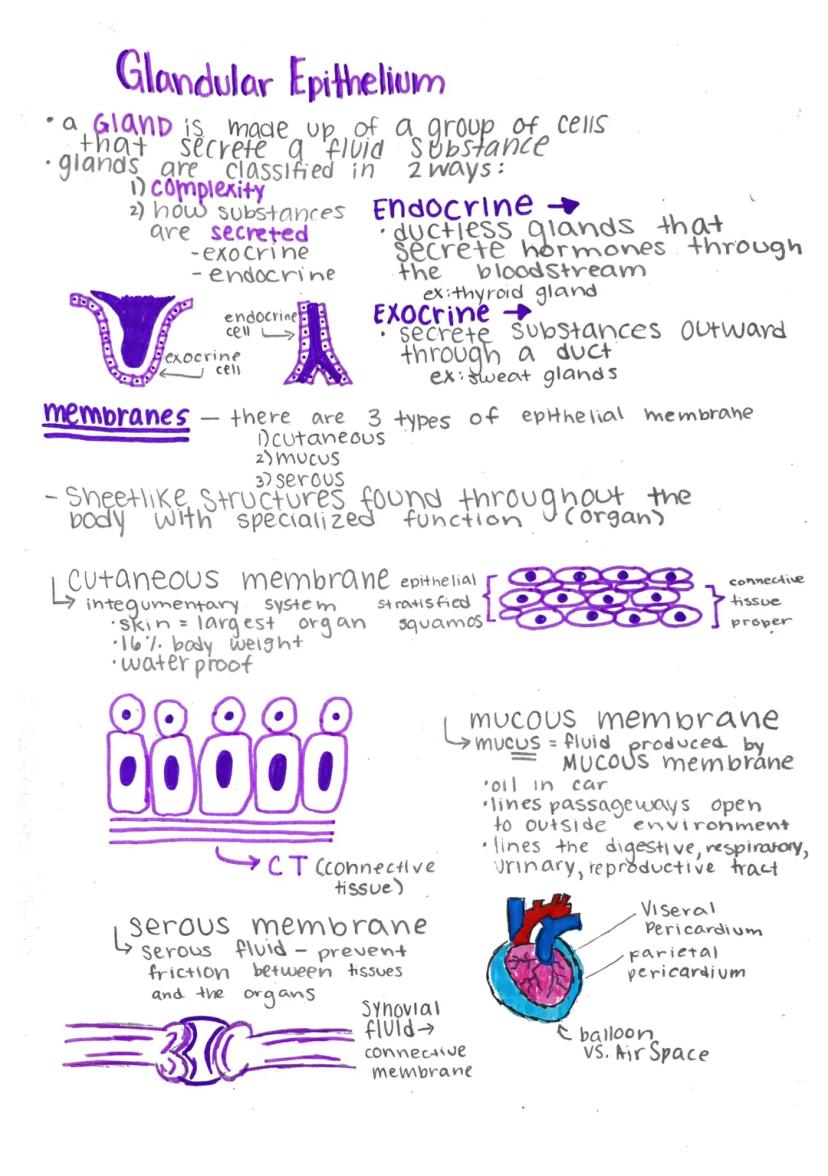 Glandular Epithelium
• a GLAND is made up of a group of cells
that secrete a fluid substance
• glands are classified in 2 ways:
1) complexity
2) how substances
are secreted
- exocrine
- endocrine
Endocrine →
• ductless glands that
secrete hormones through
the bloodstream
ex: thyroid gland
Exocrine →
• secrete substances outward
through a duct
ex: sweat glands
exocrine
cell
endocrine
cell
membranes – there are 3 types of epithelial membrane
1) cutaneous
2) mucus
3) serous
- Sheetlike structures found throughout the
body with specialized function (organ)
cutaneous membrane
integumentary system
• skin = largest organ
• 16% body weight
• waterproof
epithelial
stratisfied
squamos
connective
tissue
proper
CT (connective
tissue)
mucous membrane
mucus = fluid produced by
mucous membrane
• oil in car
• lines passageways open
to outside environment
• lines the digestive, respiratory,
urinary, reproductive tract
serous membrane
serous fluid – prevent
friction between tissues
and the organs
Synovial
fluid →
connective
membrane
Viseral
Pericardium
parietal
pericardium
balloon
vs. Air Space